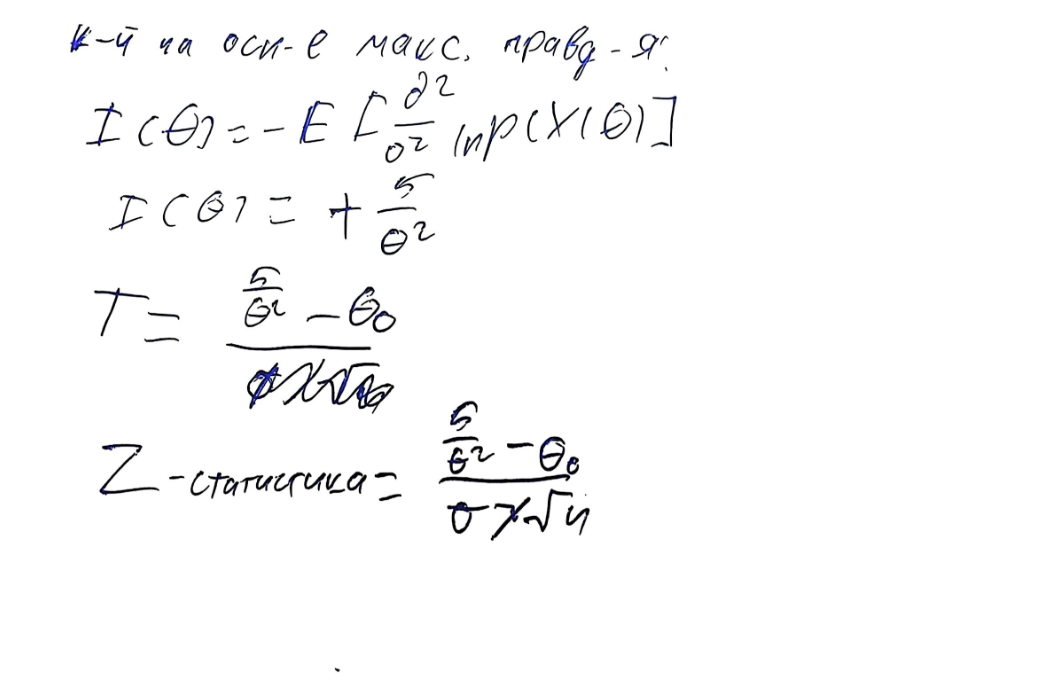 к-й на осн-е макс. правд-я:
I(θ) = -E[∂²/θ² ln p(X|θ)]
I(θ) = + 5/θ²
T = (5/θ² - θ₀)/
Z-статистика = (5/θ² - θ₀)/(σ √n)